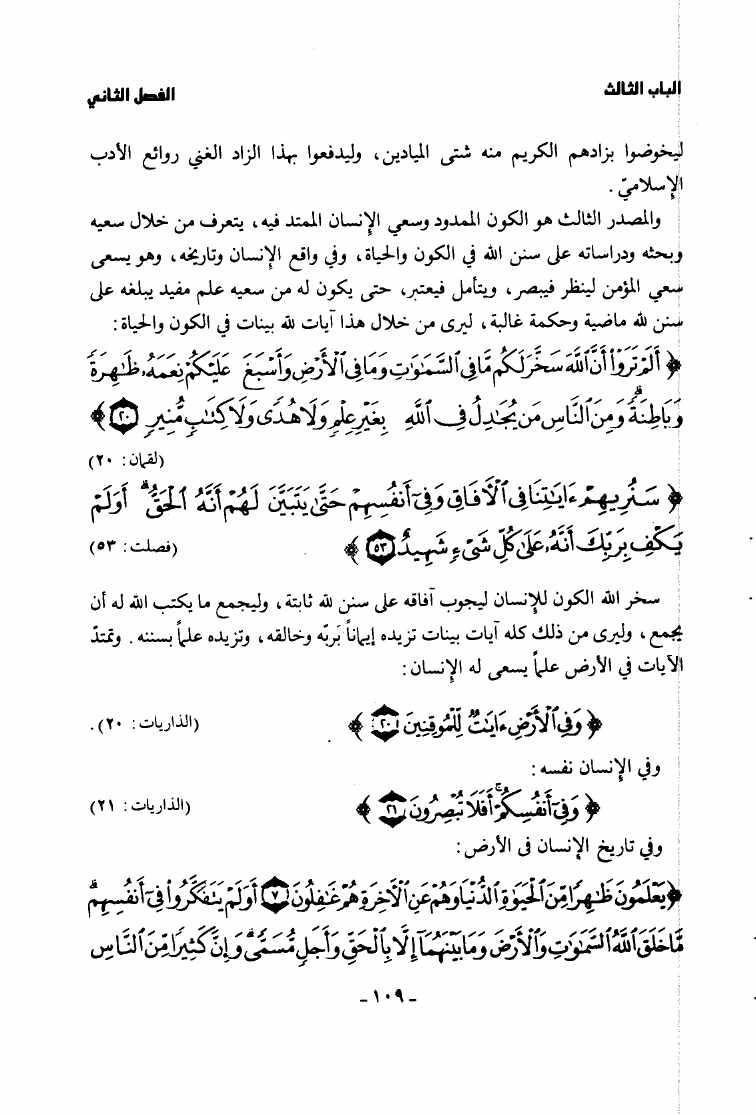 الباب الثالث
الفصل الثاني
ليخوضوا بزادهم الكريم منه شتى الميادين، وليدفعوا بهذا الزاد الغني روائع الأدب
الإسلاميّ.
والمصدر الثالث هو الكون الممدود وسعي الإنسان الممتد فيه، يتعرف من خلال سعيه
وبحثه ودراساته على سنن الله في الكون والحياة، وفي واقع الإنسان وتاريخه، وهو يسعى
سعي المؤمن لينظر فيبصر، ويتأمل فيعتبر، حتى يكون له من سعيه علم مفيد يبلغه على
سنن لله ماضية وحكمة غالبة، ليرى من خلال هذا آيات لله بينات في الكون والحياة:
﴿ أَلَمْ تَرَوْا۟ أَنَّ ٱللَّهَ سَخَّرَ لَكُم مَّا فِى ٱلسَّمَٰوَٰتِ وَمَا فِى ٱلْأَرْضِ وَأَسْبَغَ عَلَيْكُمْ نِعَمَهُۥ ظَٰهِرَةً
وَبَاطِنَةً ۗ وَمِنَ ٱلنَّاسِ مَن يُجَٰدِلُ فِى ٱللَّهِ بِغَيْرِ عِلْمٍ وَلَا هُدًى وَلَا كِتَٰبٍ مُّنِيرٍ ٢٠ ﴾
(لقمان: ٢٠)
﴿ سَنُرِيهِمْ ءَايَٰتِنَا فِى ٱلْءَافَاقِ وَفِىٓ أَنفُسِهِمْ حَتَّىٰ يَتَبَيَّنَ لَهُمْ أَنَّهُ ٱلْحَقُّ ۗ أَوَلَمْ
يَكْفِ بِرَبِّكَ أَنَّهُۥ عَلَىٰ كُلِّ شَىْءٍ شَهِيدٌ ٥٣ ﴾ (فصلت: ٥٣)
سخر الله الكون للإنسان ليجوب آفاقه على سنن لله ثابتة، وليجمع ما يكتب الله له أن
يجمع، وليرى من ذلك كله آيات بينات تزيده إيماناً بَربّه وخالقه، وتزيده علماً بسننه. وتمتدّ
الآيات في الأرض علماً يسعى له الإنسان:
﴿ وَفِى ٱلْأَرْضِ ءَايَٰتٌ لِّلْمُوقِنِينَ ٢٠ ﴾ (الذاريات: ٢٠).
وفي الإنسان نفسه:
﴿ وَفِىٓ أَنفُسِكُمْ ۚ أَفَلَا تُبْصِرُونَ ٢١ ﴾ (الذاريات: ٢١)
وفي تاريخ الإنسان في الأرض:
﴿يَعْلَمُونَ ظَٰهِرًا مِّنَ ٱلْحَيَوٰةِ ٱلدُّنْيَا وَهُمْ عَنِ ٱلْءَاخِرَةِ هُمْ غَٰفِلُونَ ٧ أَوَلَمْ يَتَفَكَّرُوا۟ فِىٓ أَنفُسِهِم ۗ
مَّا خَلَقَ ٱللَّهُ ٱلسَّمَٰوَٰتِ وَٱلْأَرْضَ وَمَا بَيْنَهُمَآ إِلَّا بِٱلْحَقِّ وَأَجَلٍ مُّسَمًّى ۗ وَإِنَّ كَثِيرًا مِّنَ ٱلنَّاسِ
- ١٠٩ -